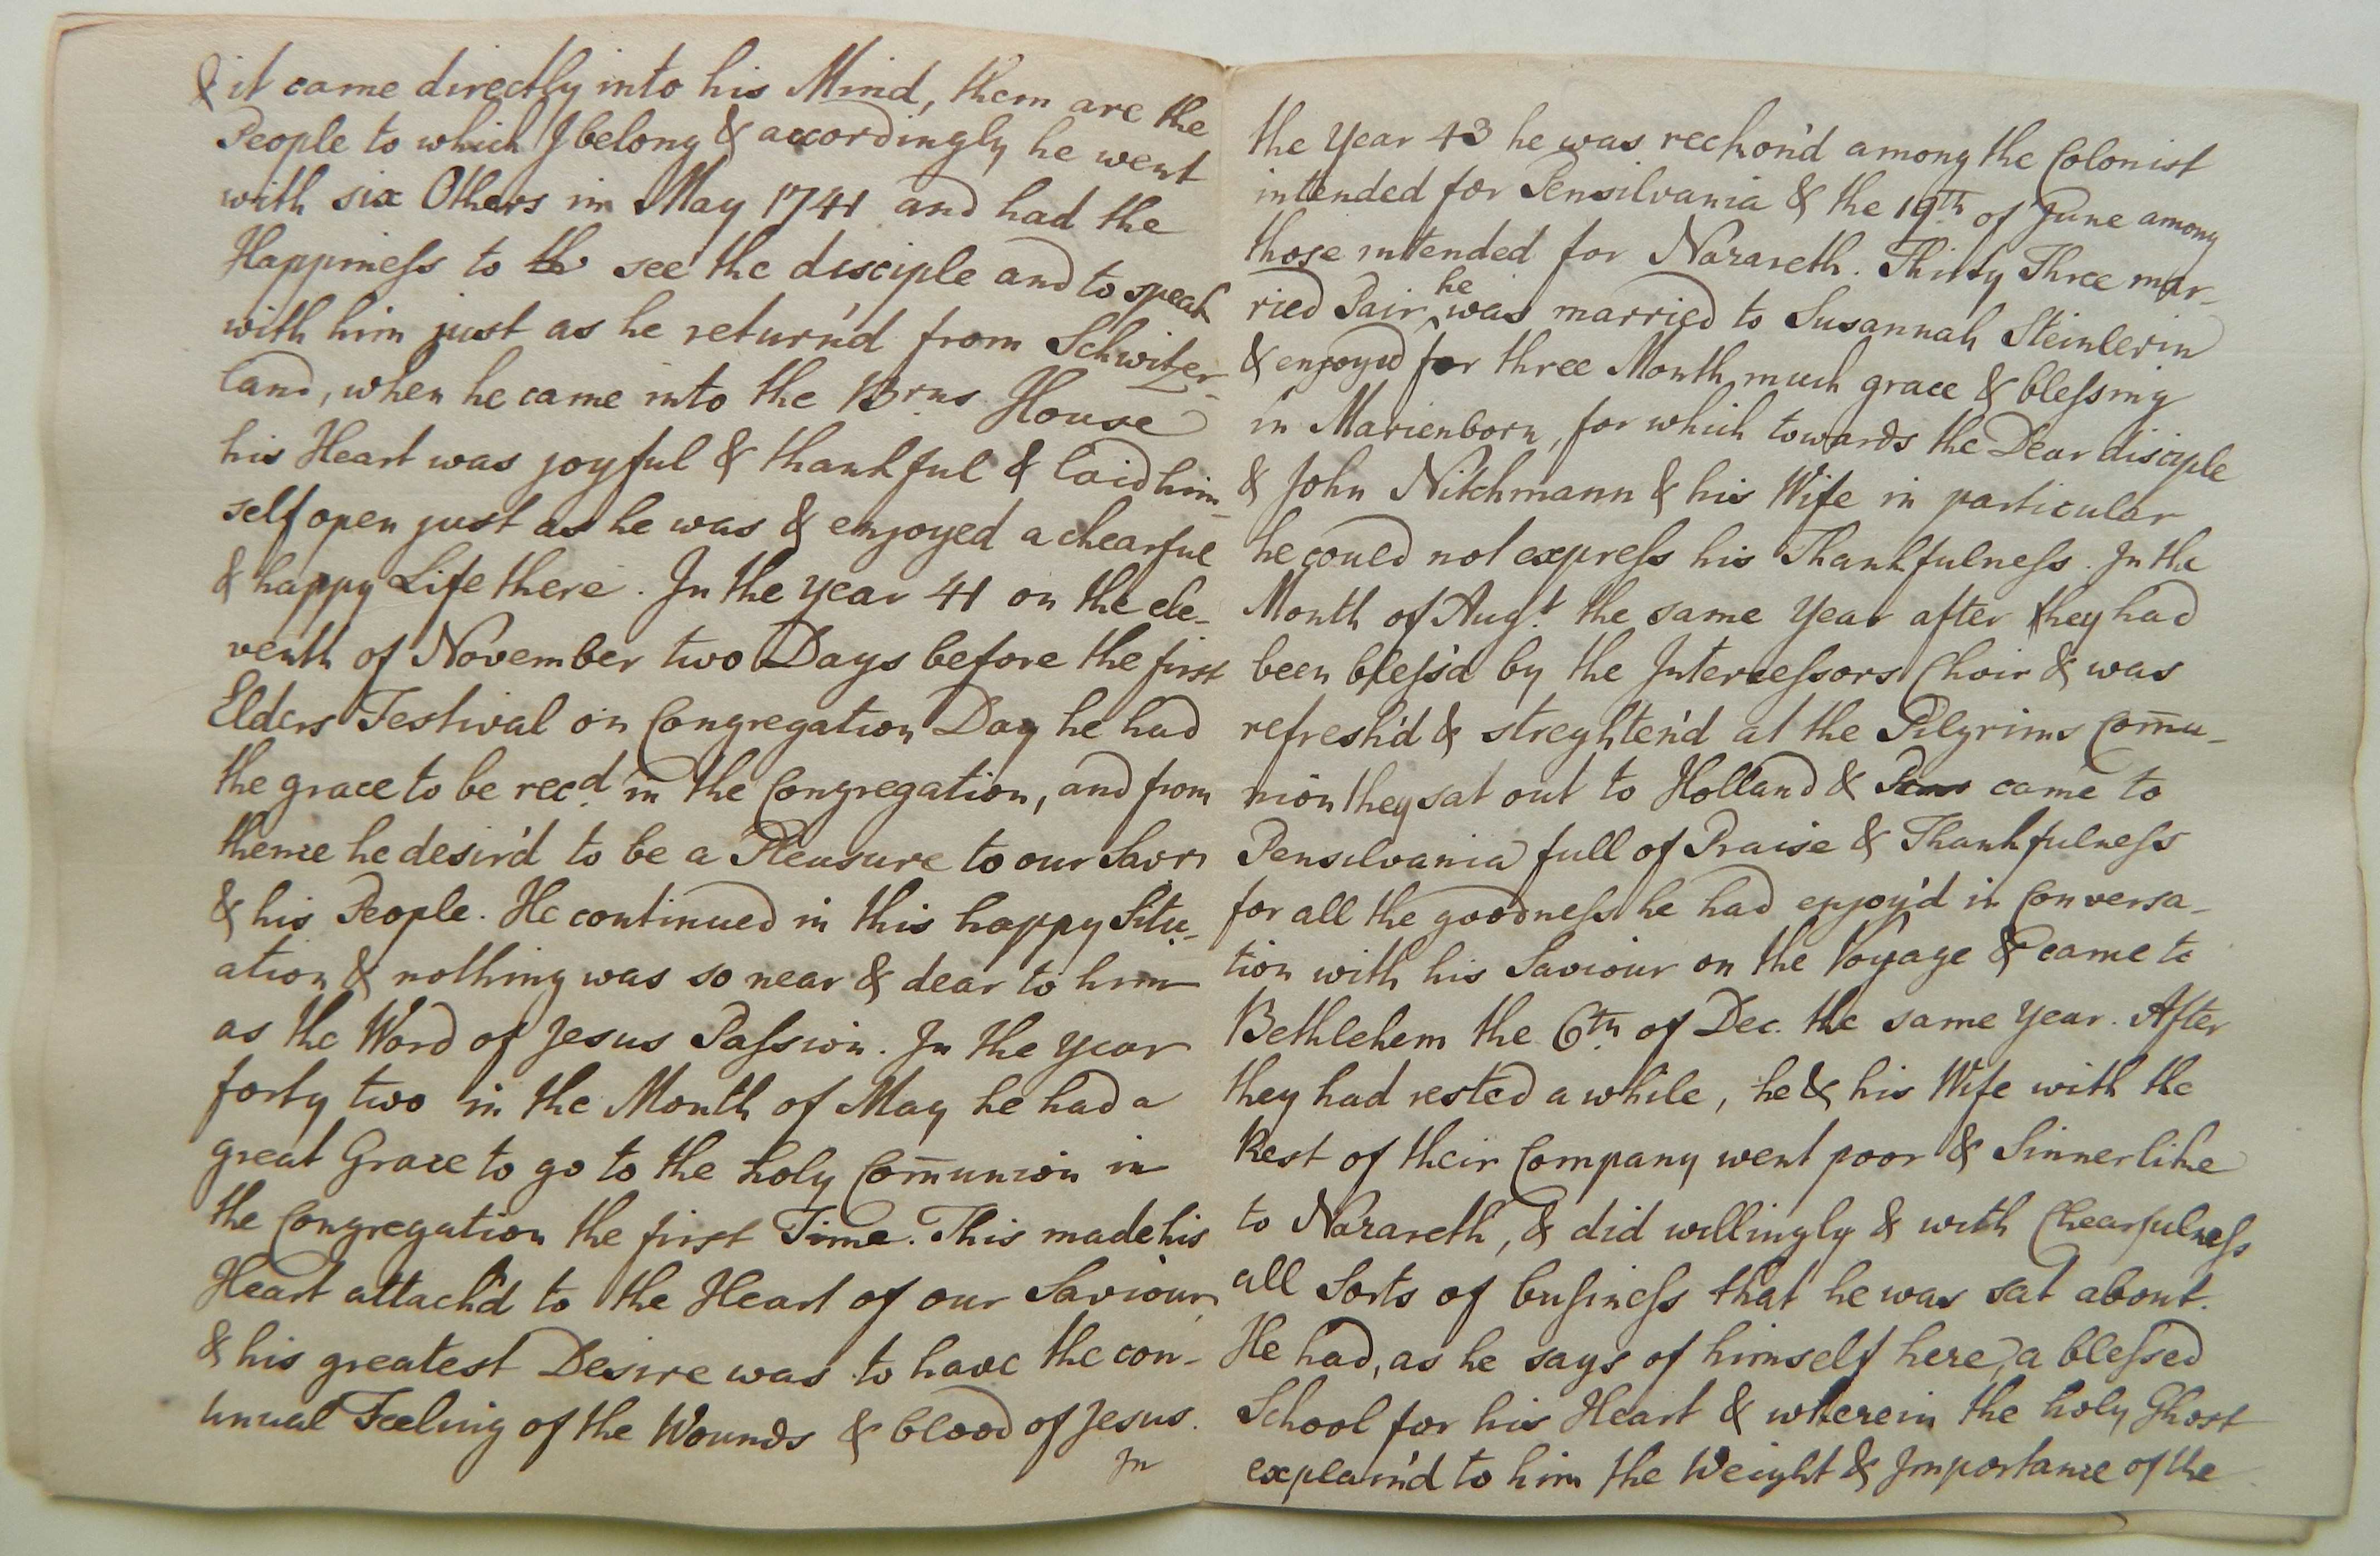 & it came directly into his Mind, them are the
People to which I belong & accordingly he went
with six Others in May 1741 and had the
Happiness to th see the disciple and to speak
with him just as he return'd from Schwitzer-
land, when he came into the Brns House
his Heart was joyful & thankful & laid him-
self open just as he was & enjoyed a chearful
& happy Life there. In the year 41 on the ele-
venth of November two Days before the first
Elders Festival on Congregation Day he had
the grace to be recd. in the Congregation, and from
thence he desir'd to be a Pleasure to our Savr
& his People. He continued in this happy Situ-
ation & nothing was so near & dear to him
as the Word of Jesus Passion. In the year
forty two in the Month of May he had a
great Grace to go to the holy Com̄union in
the Congregation the first Time. This made his
Heart attach'd to the Heart of our Saviour,
& his greatest Desire was to have the con-
tinual Feeling of the Wounds & blood of Jesus.
In
the Year 43 he was reckon'd among the Colonist
intended for Pensilvania & the 19th of June among
those intended for Nazareth. Thirty Three mar-
ried Pair he was married to Susannah Steinlerin
& enjoyed for three Month much grace & blessing
in Marienborn, for which towards the Dear disciple
& John Nitchmann & his Wife in particular
he could not express his Thankfulness. In the
Month of Augt. the same Year after they had
been bless'd by the Intercessors Choir & was
refresh'd & streghten'd at the Pilgrims Com̄u-
nion they sat out to Holland & came to
Pensilvania full of Praise & Thankfulness
for all the goodness he had enjoy'd in Conversa-
tion with his Saviour on the Voyage & came to
Bethlehem the 6th of Dec. the same year. After
they had rested a while, he & his Wife with the
Rest of their Company went poor & Sinnerlike
to Nazareth, & did willingly & with Chearfulness
all Sorts of business that he was sat about.
He had, as he says of himself here, a blessed
School for his Heart & wherein the holy Ghost
explain'd to him the Weight & Importance of the